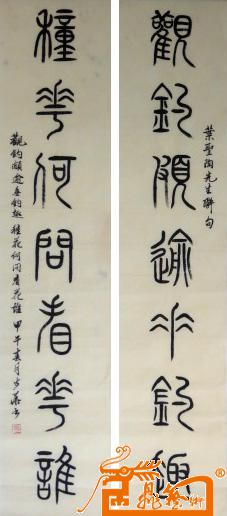 葉聖陶先生聯句
觀釣頗逾垂釣趣
種華何問看華誰
觀釣頗逾垂釣趣 種花何問看花誰 甲午春月